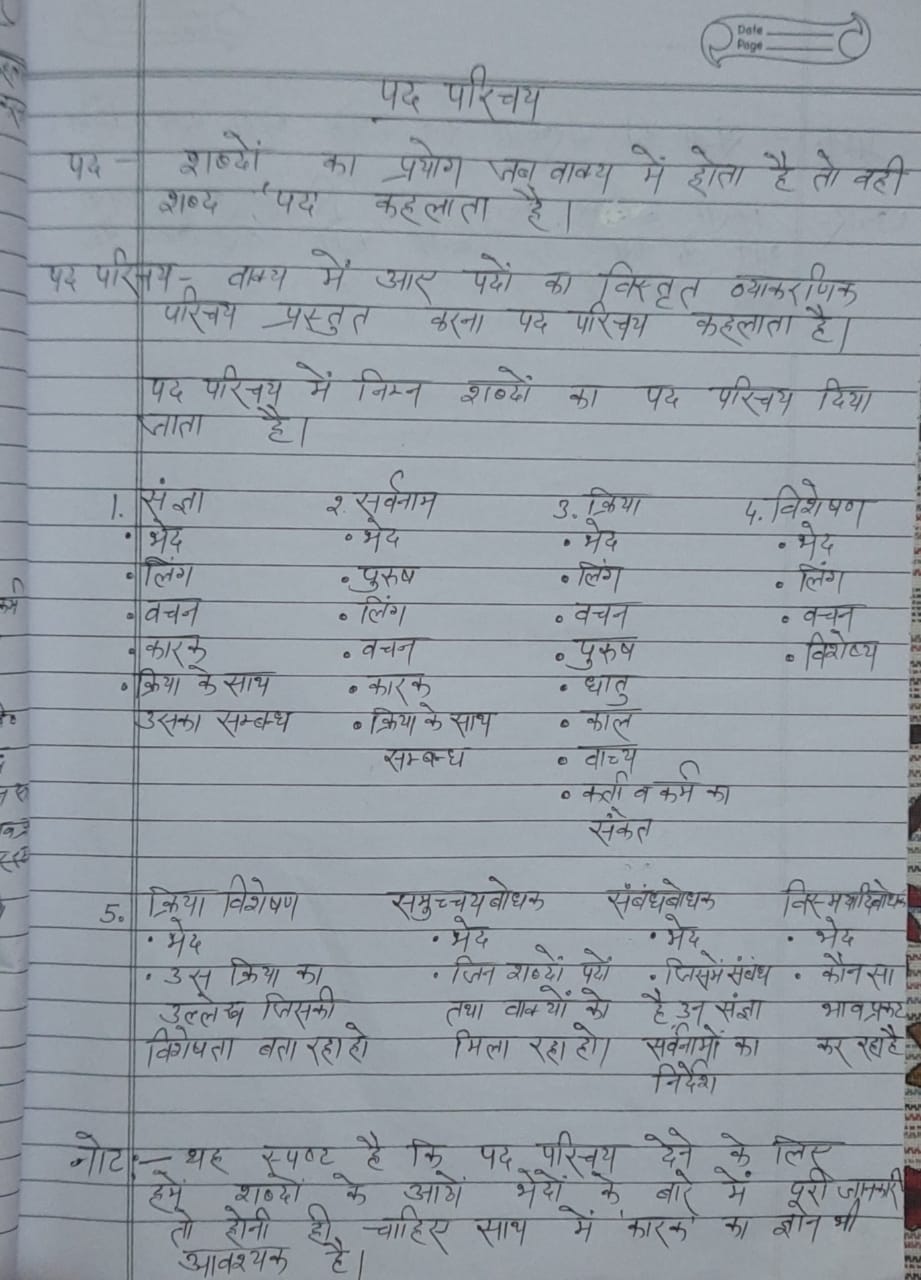 Date
Page
पद परिचय
पद - शब्दों का प्रयोग जब वाक्य में होता है तो वही
शब्द 'पद' कहलाता है।
पद परिचय - वाक्य में आए पदों का विस्तृत व्याकरणिक
परिचय प्रस्तुत करना पद परिचय कहलाता है।
पद परिचय में निम्न शब्दों का पद परिचय दिया
जाता है।
1. संज्ञा २. सर्वनाम 3. क्रिया 4. विशेषण
• भेद • भेद • भेद • भेद
• लिंग • पुरुष • लिंग • लिंग
• वचन • लिंग • वचन • वचन
• कारक • वचन • पुरुष • विशेष्य
• क्रिया के साथ • कारक • धातु
उसका सम्बन्ध • क्रिया के साथ • काल
सम्बन्ध • वाच्य
• कर्ता व कर्म का
संकेत
5. क्रिया विशेषण समुच्चयबोधक संबंधबोधक विस्मयादिबोधक
• भेद • भेद • भेद • भेद
• उस क्रिया का • जिन शब्दों पदों • जिसमें संबंध • कौन सा
उल्लेख जिसकी तथा वाक्यों को है उन संज्ञा भाव प्रकट
विशेषता बता रहा हो मिला रहा हो। सर्वनामों का कर रहा है
निर्देश
नोट :- यह स्पष्ट है कि पद परिचय देने के लिए
हमें शब्दों के आठों भेदों के बारे में पूरी जानकारी
तो होनी ही चाहिए साथ में 'कारक' का ज्ञान भी
आवश्यक है।